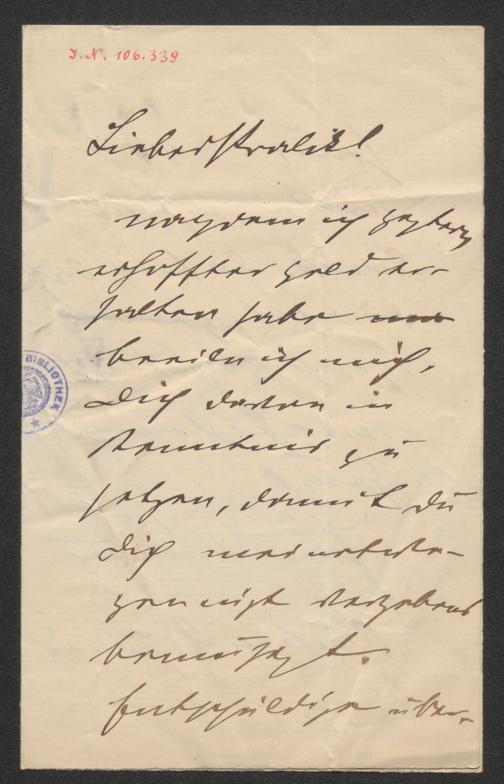 I.N. 106.339
Lieber Stralik!
nachdem ich gestern
erhofftes geld er-
halten habe
beeile ich mich,
Dich davon in
Kenntnis zu
setzen, damit du
Dich meinetwe-
gen nicht vergebens
bemühst.
Entschuldige über-
BIBLIOTHEK